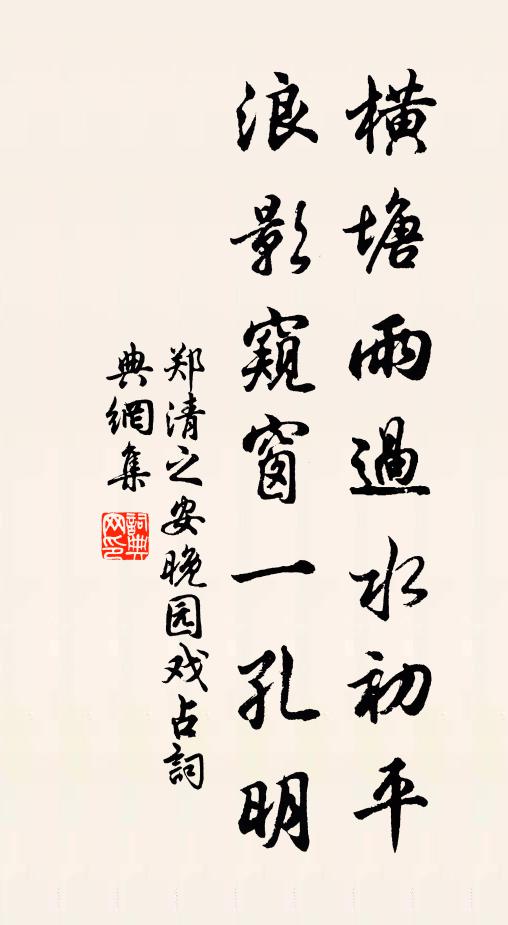 橫塘雨過水初平
浪影窺窗一孔明
郑清之安晚园戏占詞
典網集
詞典
网印